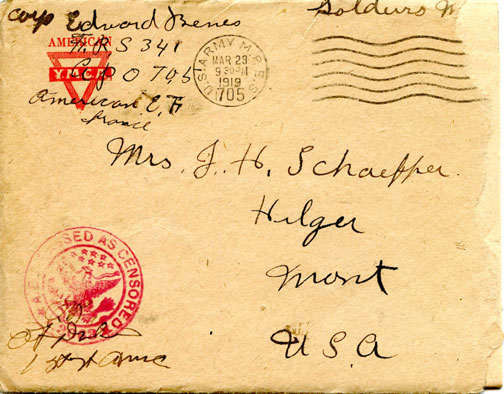 Corp Edward Benes
AMERICAN
M.R.S 341
Y.M.C.A
A.P.O 705
American E. F
France
Soldiers M
U.S. ARMY M.P.E.S.
MAR 29
9 30
1919
705
Mrs. J. H. Schaeffer.
Hilger
Mont
U.S.A
A.E.F. PASSED AS CENSORED
1st Lt